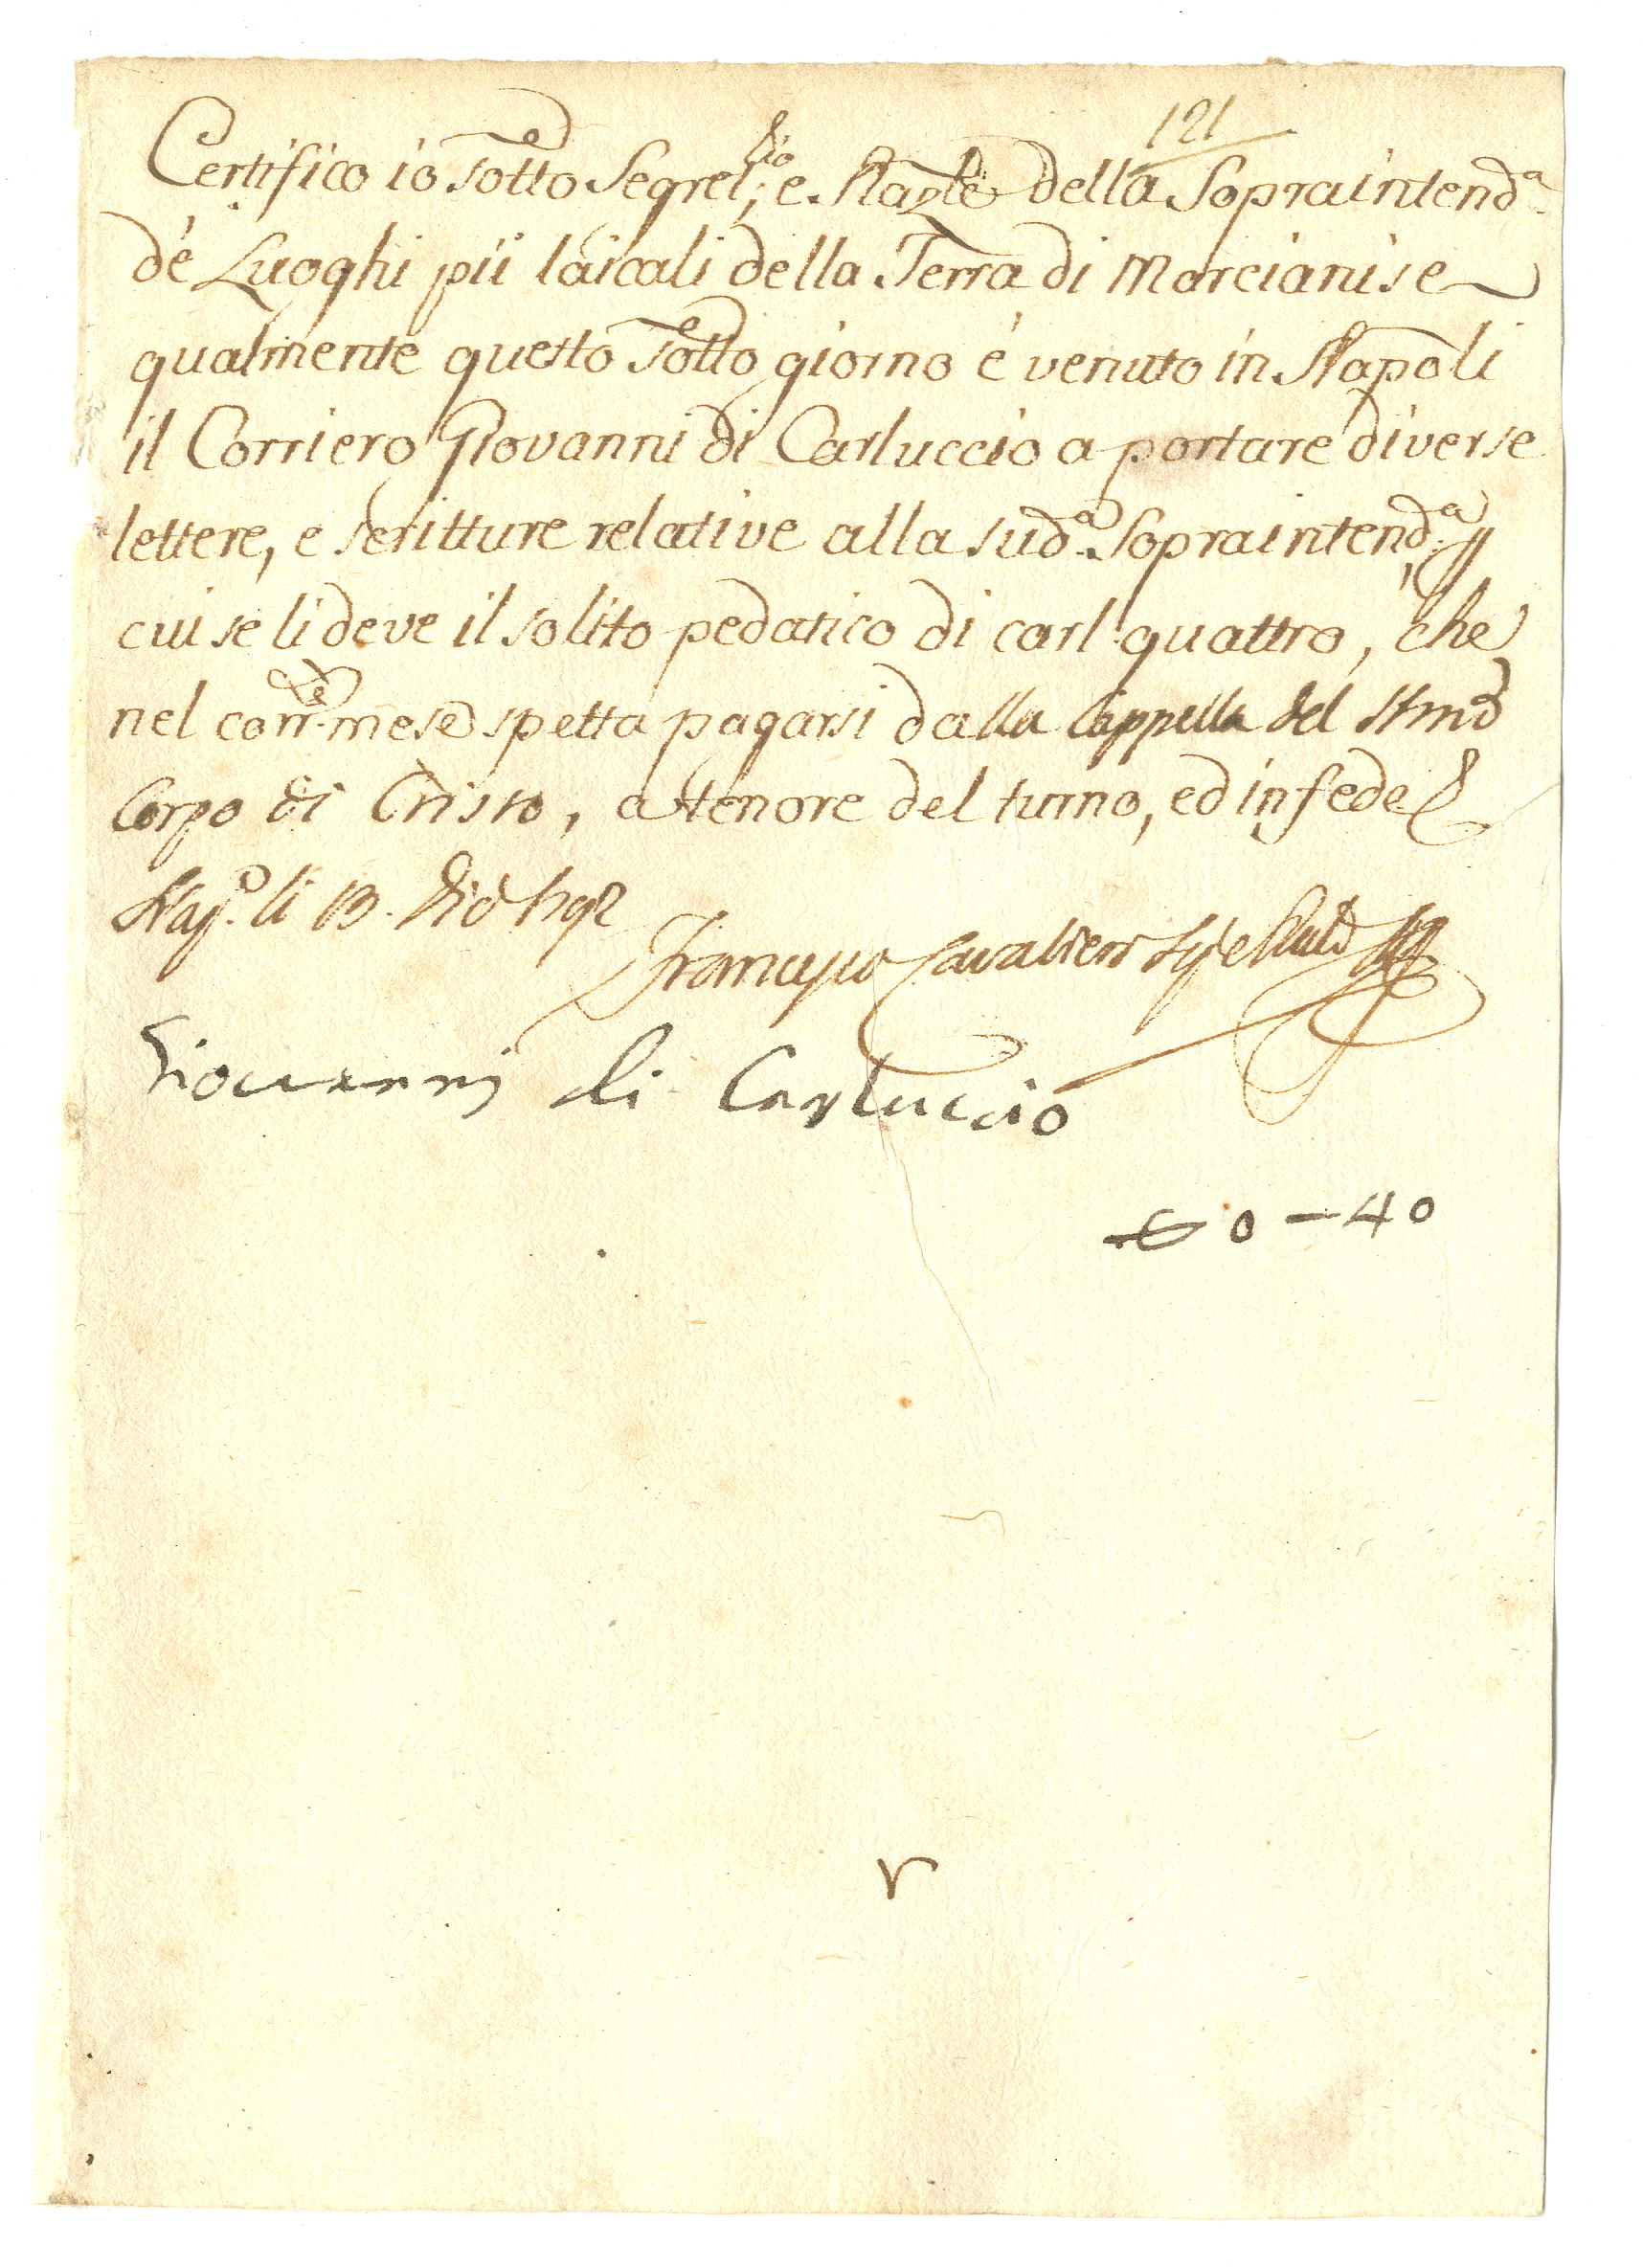 121
Certifico io sotto Segret.rio, e Raz.le della Sopraintend.a
de' Luoghi pii laicali della Terra di Marcianise
qualmente questo sotto giorno è venuto in Napoli
il Corriero Giovanni di Carluccio a portare diverse
lettere, e scritture relative alla sud.a Sopraintend.a p
cui se li deve il solito pedatico di carl. quattro, che
nel corr.e mese spetta pagarsi dalla Cappella del SSmo
Corpo di Cristo, a tenore del turno, ed in fede
Nap. li 13.
Francesco Cavalieri
Giovanni di Carluccio
0-40